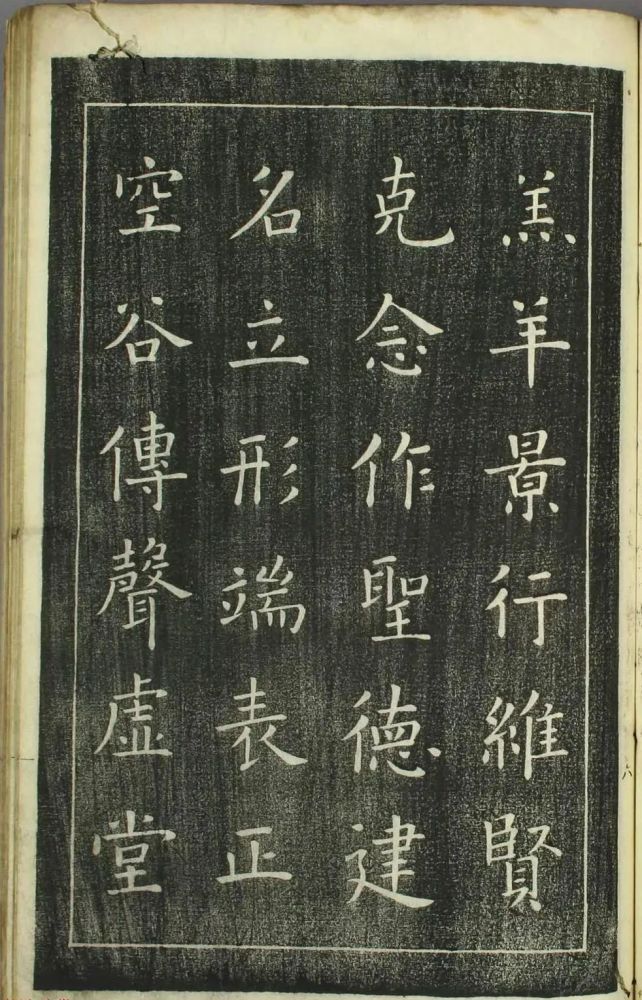 羔羊景行維賢
克念作聖德建
名立形端表正
空谷傳聲虛堂
六